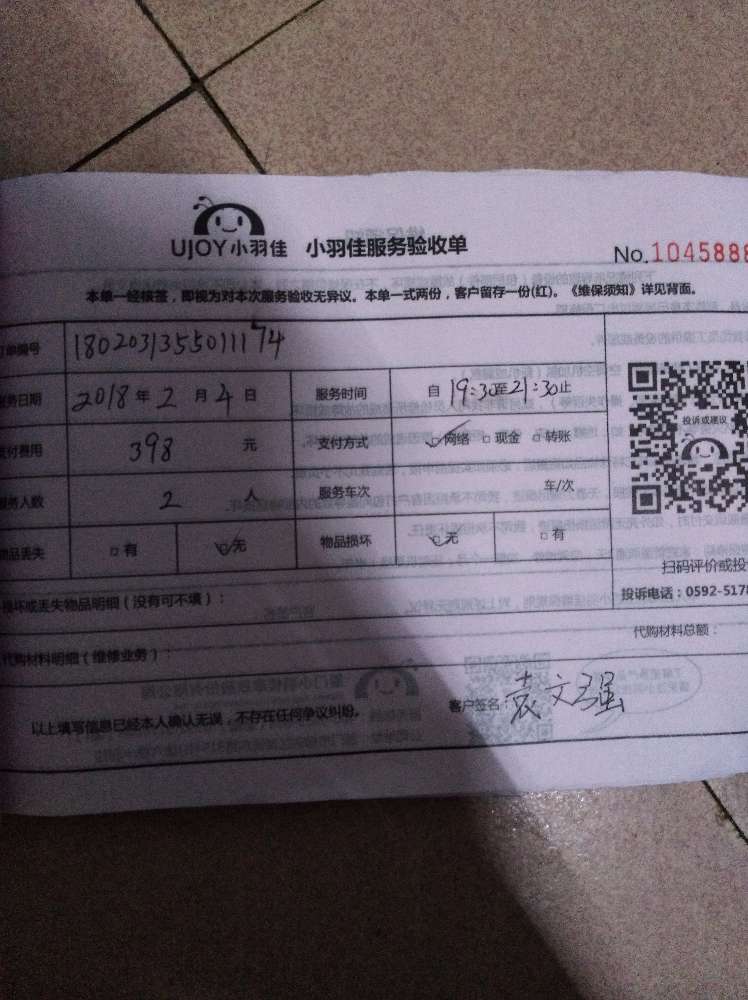 UJOY小羽佳 小羽佳服务验收单
No.1045888
本单一经核签，即视为对本次服务验收无异议。本单一式两份，客户留存一份(红)。《维保须知》详见背面。
单编号 18020313550111174
务日期 2018年2月4日 服务时间 自19:30至21:30止
付费用 398 元 支付方式 网络 现金 转账
务人数 2 人 服务车次 车/次
物品丢失 有 无 物品损坏 无 有
投诉或建议
扫码评价或投
投诉电话：0592-5178
损坏或丢失物品明细（没有可不填）：
代购材料总额：
代购材料明细（维修业务）：
以上填写信息已经本人确认无误，不存在任何争议纠纷。
客户签名：袁文强